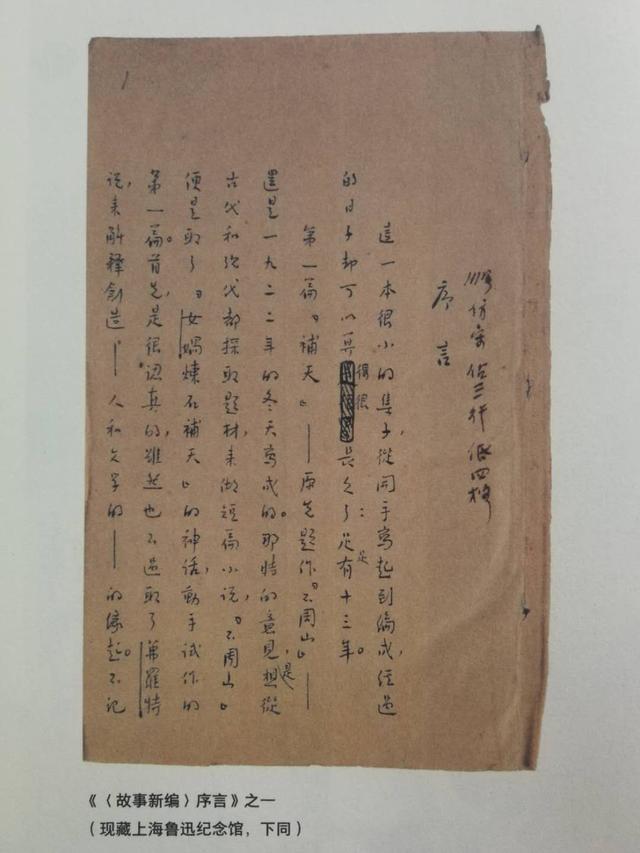 1
号仿宋 佔三行 低四格
序言
這一本很小的集子,從開手寫起到編成,經過
的日子却可以算得很長久了:足足有十三年。
第一篇『補天』——原先題作『不周山』——
還是一九二二年的冬天寫成的。那時的意見,是想從
古代和現代都採取題材,來做短篇小說,『不周山』
便是取了『女媧煉石補天』的神話,動手試作的
第一篇。首先,是很認真的,雖然也不過取了茀羅特
說,來解釋創造——人和文学的——的緣起。不記
《〈故事新编〉序言》之一
(现藏上海鲁迅纪念馆,下同)